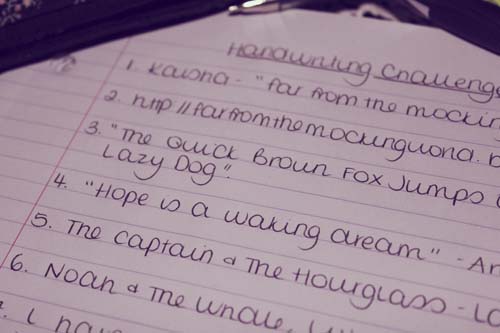 Handwriting Challenge
1. Kaisha - "Far from the mocking
2. http://farfromthemockingworld.b
3. "The Quick Brown Fox Jumps
Lazy Dog".
4. "Hope is a waking dream" - Ar
5. The Captain & The Hourglass - La
6. Noah & The Whale,